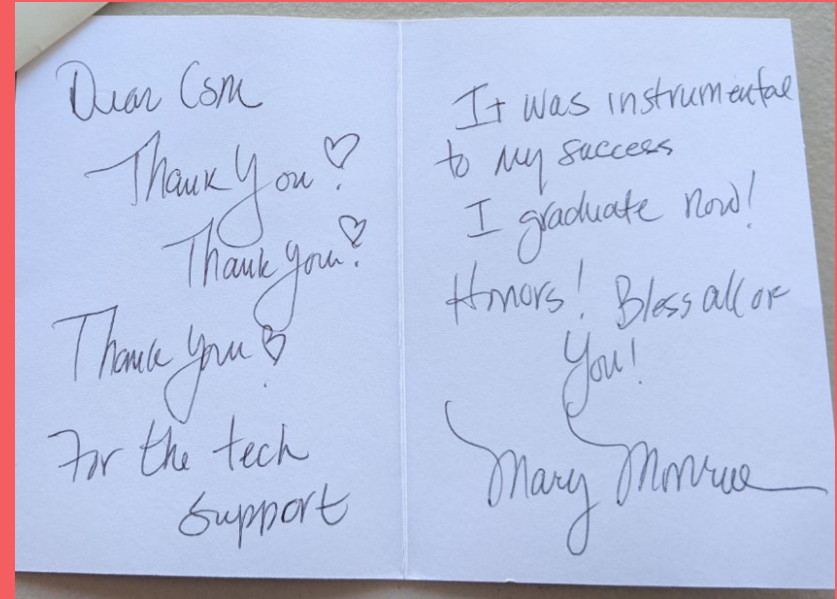 Dear CSM
Thank You!
Thank you!
Thank you!
For the tech
support
It was instrumental
to my success
I graduate now!
Honors! Bless all of
You!
Mary Monroe